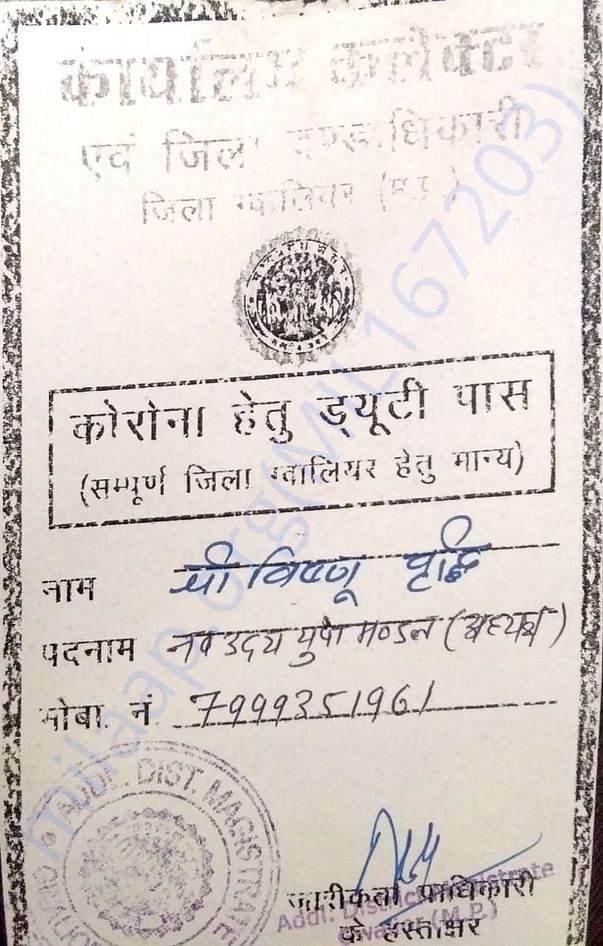 कार्यालय कलेक्टर
एवं जिला दण्डाधिकारी
जिला ग्वालियर (म.प्र.)
कोरोना हेतु ड्यूटी पास
(सम्पूर्ण जिला ग्वालियर हेतु मान्य)
नाम श्री विष्णू
पदनाम नव उदय युवा मण्डल (अध्यक्ष)
मोबा. नं. 7999351961
ADDL. DIST. MAGISTRATE
जारीकर्ता प्राधिकारी
के हस्ताक्षर
Addl. District Magistrate
Gwalior (M.P.)
milaap.org(MIL167203)